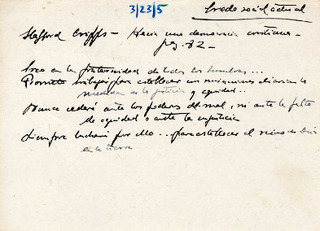 3/23/5
Credo social actual
Stafford Cripps - Hacia una democracia cristiana -
pág. 82 -
Creo en la fraternidad de todos los hombres...
Prometo trabajar para establecer un
en la justicia y equidad..
Nunca cederé ante los poderes del mal, ni ante la falta
de equidad o ante la injusticia
Siempre lucharé por ello... para establecer el reino de Dios
en la tierra